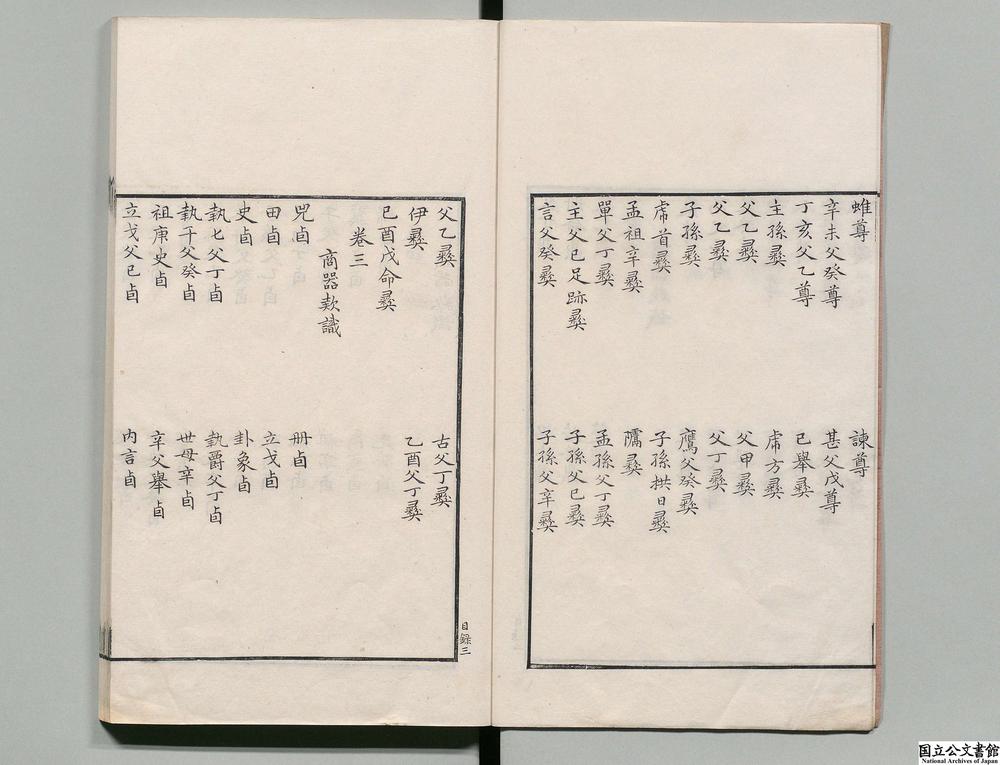 蜼尊　諫尊
辛未父癸尊　甚父戊尊
丁亥父乙尊　已舉彝
主孫彝　虎方彝
父乙彝　父甲彝
父乙彝　父丁彝
子孫彝　鷹父癸彝
虎首彝　子孫拱日彝
孟祖辛彝　隲彝
單父丁彝　孟孫父丁彝
主父已足跡彝　子孫父已彝
言父癸彝　子孫父辛彝
父乙彝　古父丁彝
伊彝　乙酉父丁彝
已酉戊命彝
卷三
商器款識
兕卣　冊卣
田卣　立戈卣
史卣　卦象卣
執七父丁卣　執爵父丁卣
執干父癸卣　世母辛卣
祖庚史卣　辛父舉卣
立戈父已卣　內言卣
目錄三
国立公文書館
National Archives of Japan